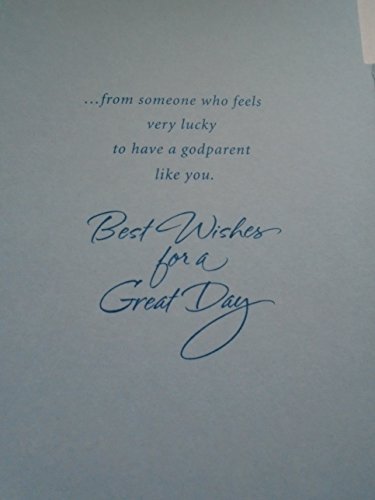 ...from someone who feels
very lucky
to have a godparent
like you.
Best Wishes
for a
Great Day